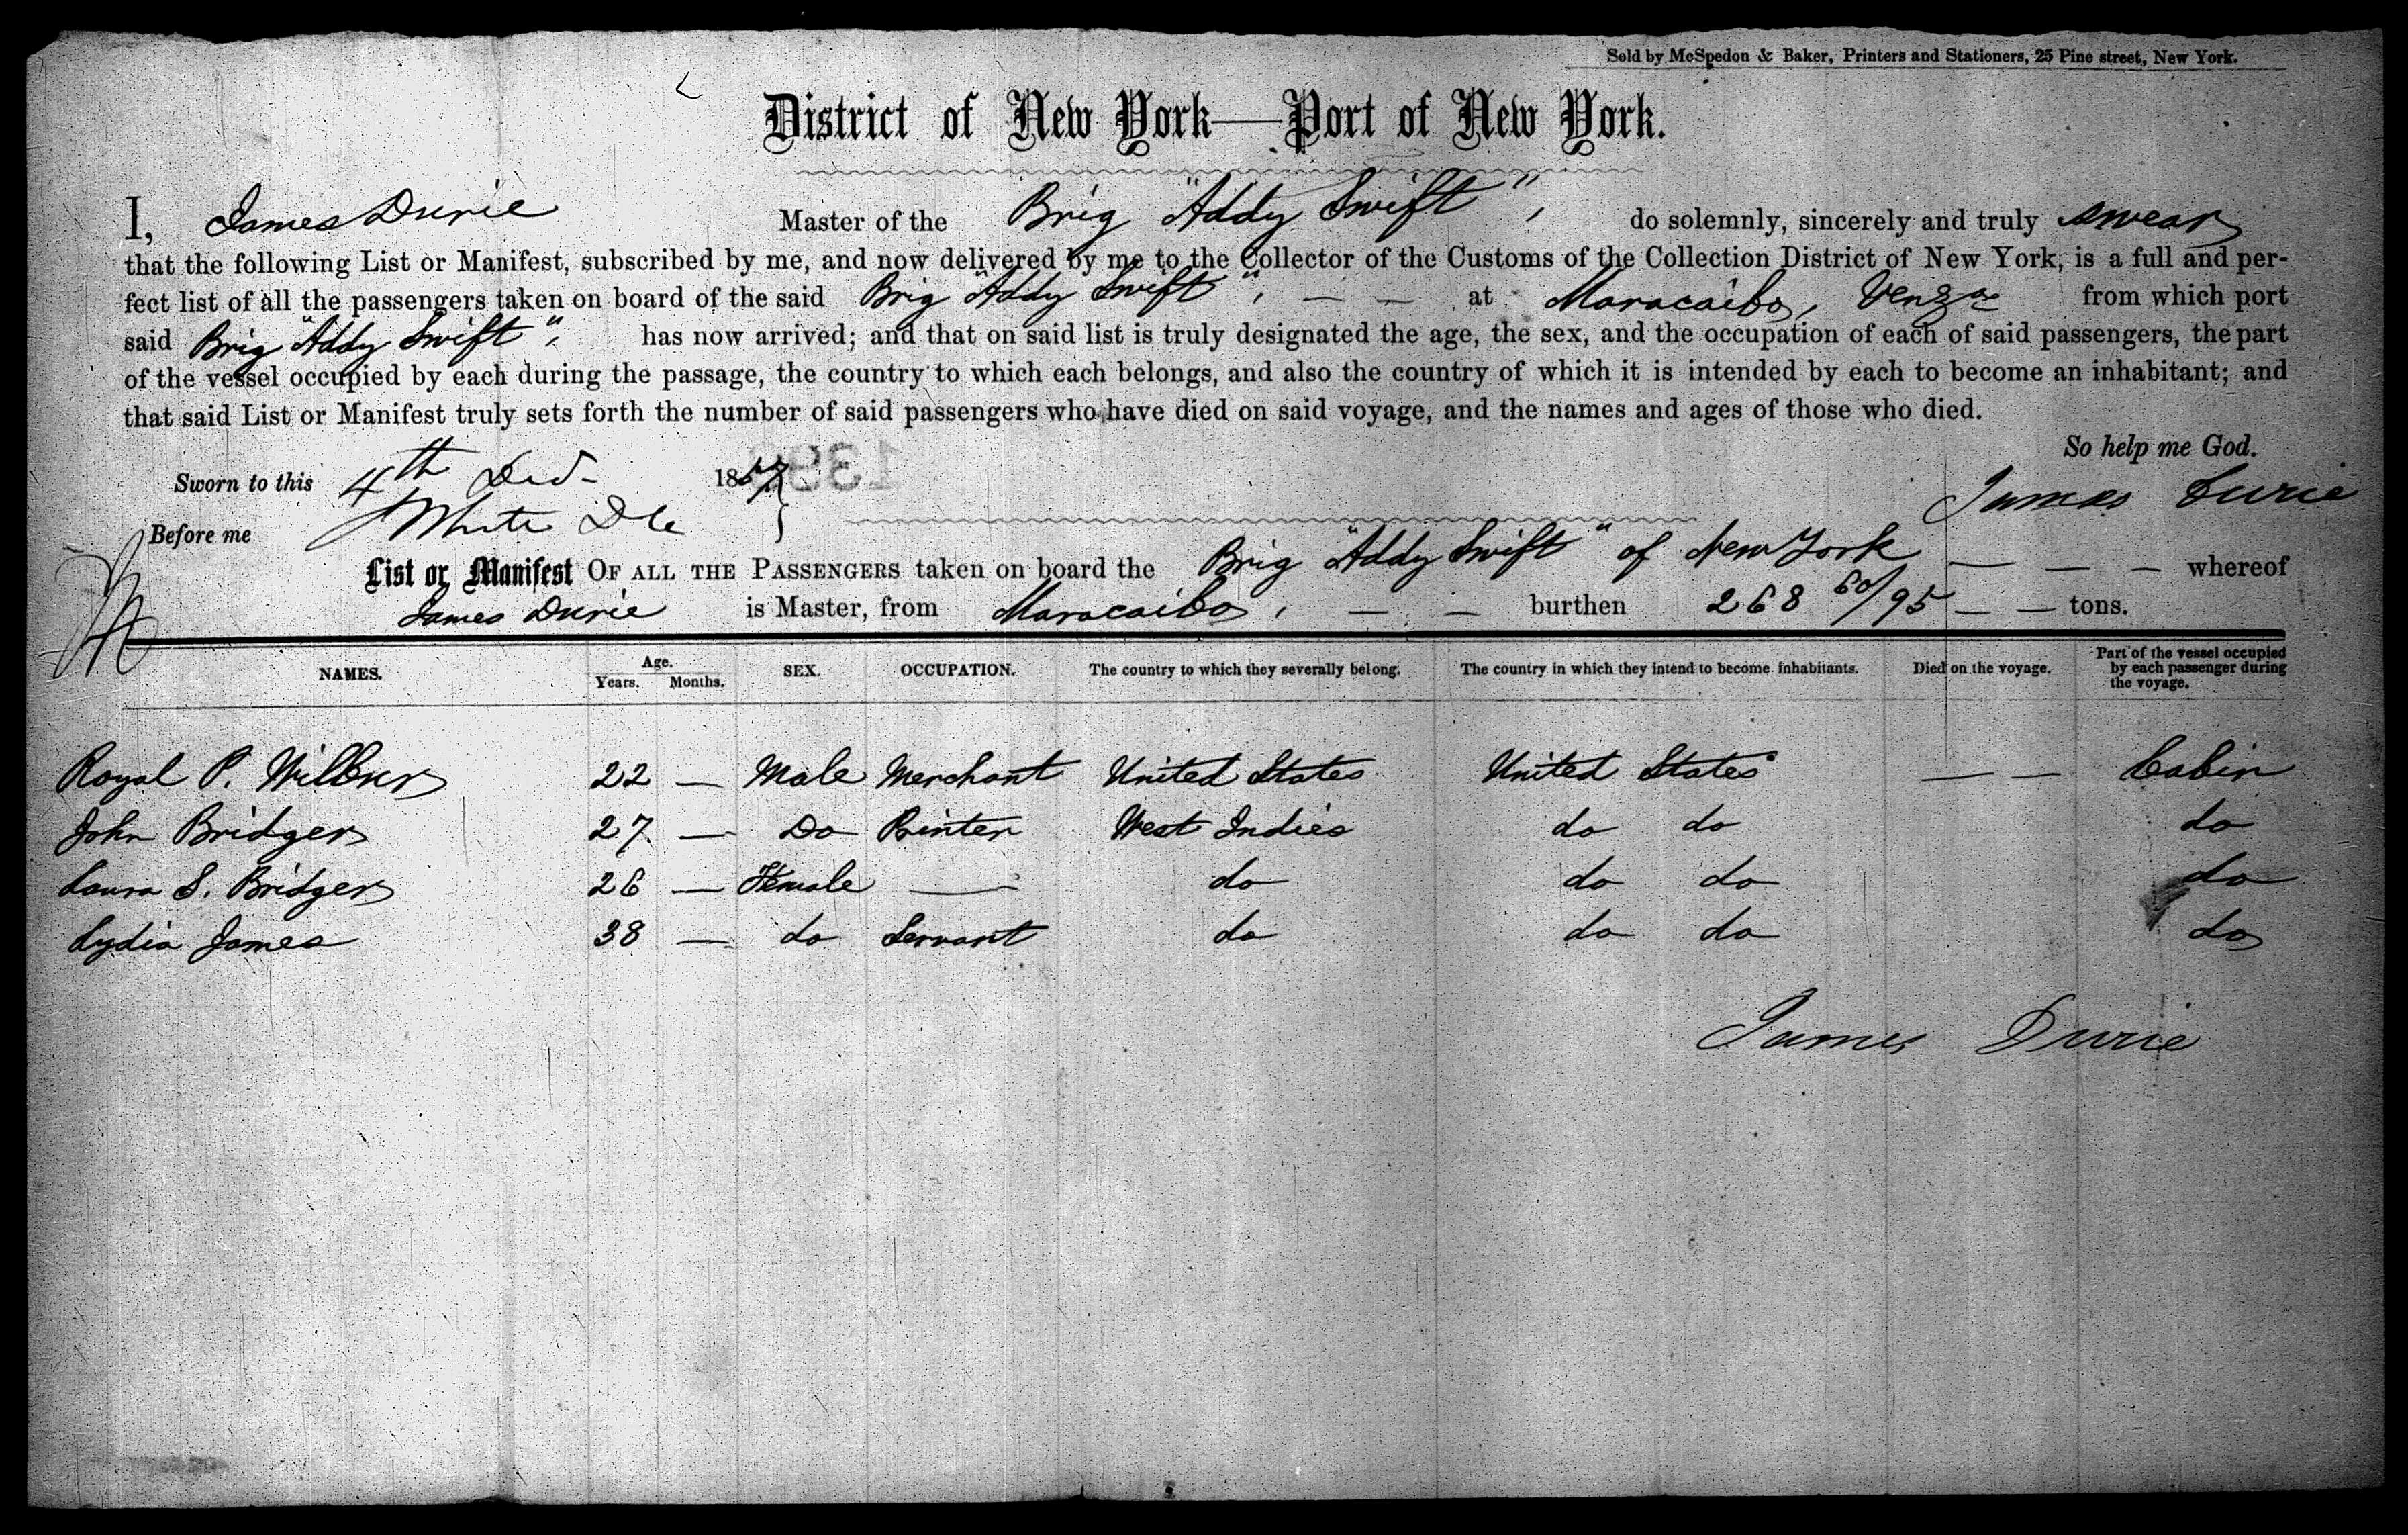 Sold by McSpedon & Baker, Printers and Stationers, 25 Pine street, New York.
District of New York—Port of New York.
I, James Durie Master of the Brig "Addy Swift", do solemnly, sincerely and truly swear
that the following List or Manifest, subscribed by me, and now delivered by me to the Collector of the Customs of the Collection District of New York, is a full and per-
fect list of all the passengers taken on board of the said Brig "Addy Swift", — — at Maracaibo, Venza from which port
said Brig "Addy Swift", has now arrived; and that on said list is truly designated the age, the sex, and the occupation of each of said passengers, the part
of the vessel occupied by each during the passage, the country to which each belongs, and also the country of which it is intended by each to become an inhabitant; and
that said List or Manifest truly sets forth the number of said passengers who have died on said voyage, and the names and ages of those who died.
So help me God.
Sworn to this 4th 1857 James Durie
Before me White
List or Manifest OF ALL THE PASSENGERS taken on board the Brig "Addy Swift" of New York — — — whereof
James Durie is Master, from Maracaibo, — — burthen 268 60/95 — — tons.
NAMES. Age. Years. Months. SEX. OCCUPATION. The country to which they severally belong. The country in which they intend to become inhabitants. Died on the voyage. Part of the vessel occupied by each passenger during the voyage.
Royal P. Wilbur 22 — Male Merchant United States United States — — Cabin
John Bridger 27 — Do Printer West Indies do do do
Laura S. Bridger 26 — Female — do do do do
Lydia James 38 — do Servant do do do do
James Durie